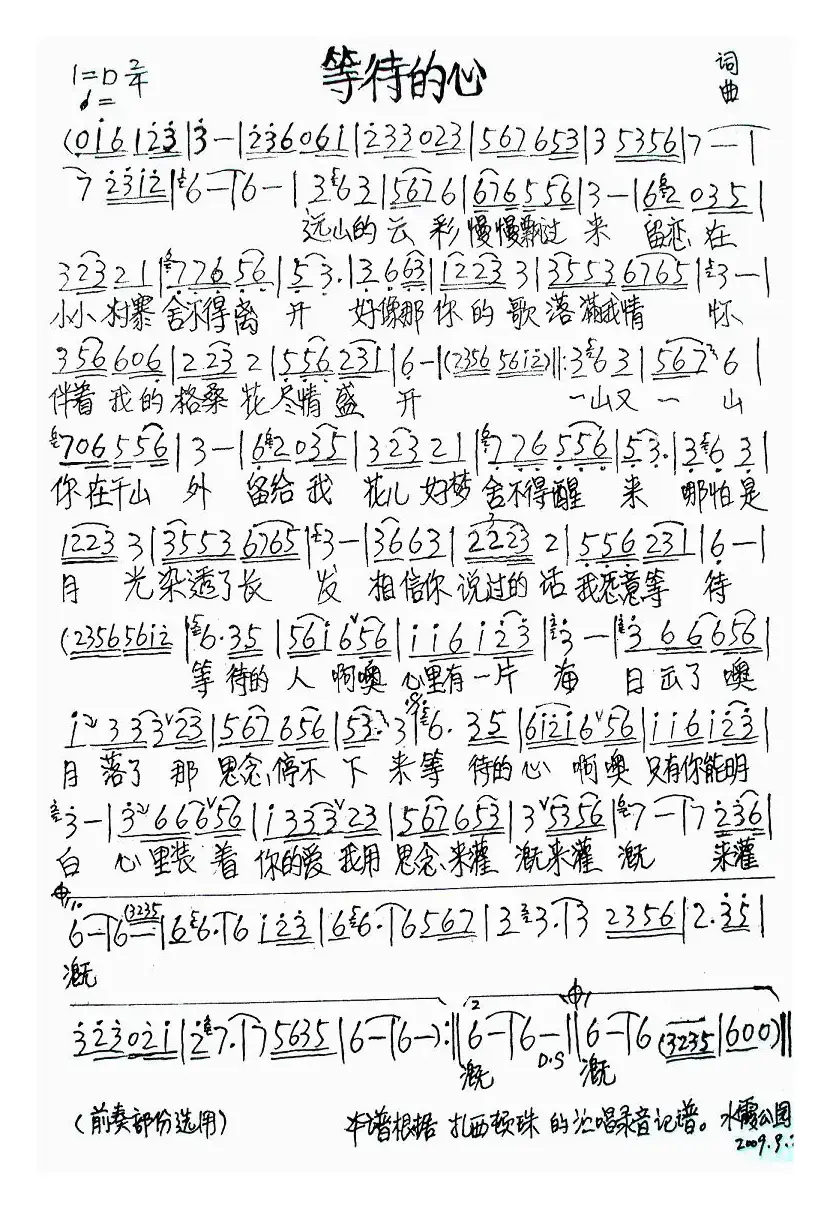 等待的心
1=D 2/4
词
曲
(0i61 2̇3̇|3̇-|2̇36061|2̇33 023|567653|3 5356|7-|
7 2̇3̇i2̇|6-|6-|3 63|5676|676556|3-|62 035|
远山的云彩慢慢飘过来 留恋在
3 23 21|776 56|5 3.|3 663|1223 3|3553 6765|3-|
小小村寨舍不得离开 好像那你的歌落满我情怀
356 606|2 23 2|556 231|6-|(2356 56i2̇)‖:3 63|567 6|
伴着我的格桑花尽情盛开 一山又一山
706 556|3-|62 035|3 23 21|776 556|53.|3 6 3|
你在千山外 留给我花儿好梦舍不得醒来 哪怕是
1223 3|3553 6765|3-|3663|2223 2|556 231|6-|
月光染透了长发 相信你说过的话我愿意等待
(2356 56i2̇|6.35|56i 656|i i6 i2̇3̇|3̇-|3̇ 66656|
等待的人啊噢心里有一片海 日出了噢
i 33323|567 656|53. 3|6. 35|6i2̇i6 56|i i6 i2̇3̇|
月落了那思念停不下来等待的心啊噢只有你能明
3̇-|3̇ 66656|i 33323|567 653|3 5356|7-|7 2̇3̇6|
白 心里装着你的爱我用思念来灌溉来灌溉 来灌
1.
6-|6-(3235|6 6.|6 i2̇3̇|6 6.|6567|3 3.|3 2356|2.3̇5|
溉
3̇2̇3̇ 02̇i|2̇7.|7 5635|6-|6-):‖6-|6- D.S‖6-|6 (3235|600)‖
溉 溉
(前奏部份选用) 本谱根据 扎西顿珠 的演唱录音记谱。水霞公园
2009.9.